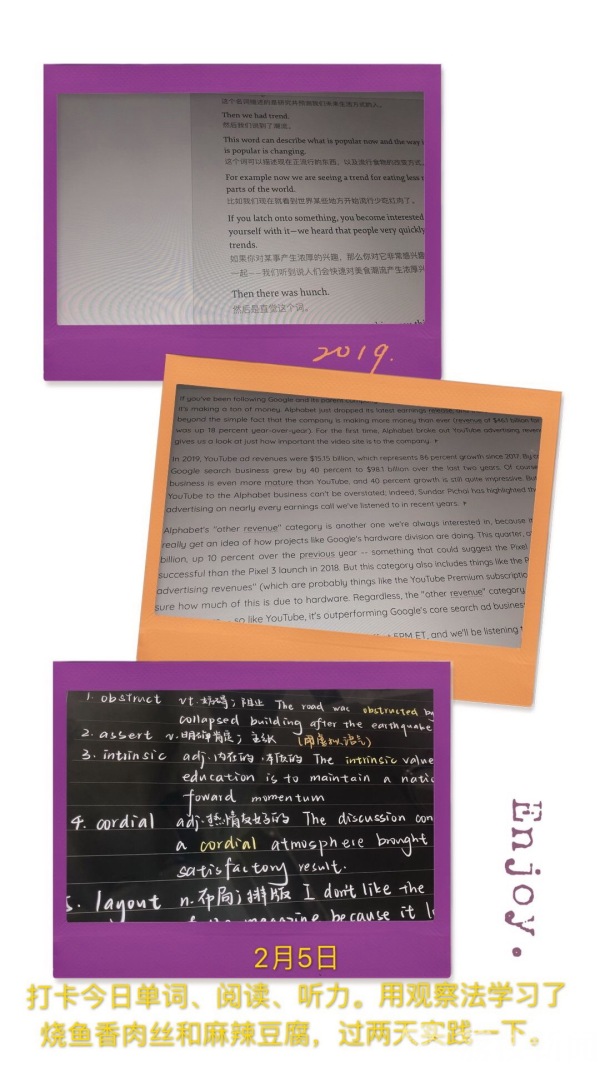 这个名词描述的是研究并预测我们未来生活方式的人。
Then we had trend.
然后我们谈到了潮流。
This word can describe what is popular now and the way
is popular is changing.
这个词可以描述现在正流行的东西，以及流行食物的改变方式。
For example now we are seeing a trend for eating less
parts of the world.
比如我们现在就看到世界某些地方开始流行少吃红肉了。
If you latch onto something, you become interested
yourself with it—we heard that people very quickly
trends.
如果你对某事产生浓厚的兴趣，那么你对它非常感兴趣
一起——我们听到说人们会快速对美食潮流产生浓厚兴
Then there was hunch.
然后是直觉这个词。
2019.
If you've been following Google and its parent
it's making a ton of money. Alphabet just dropped its latest earnings
beyond the simple fact that the company is making more money than ever (revenue of $46.1 billion for
was up 18 percent year-over-year). For the first time, Alphabet broke out YouTube advertising
gives us a look at just how important the video site is to the company.
In 2019, YouTube ad revenues were $15.15 billion, which represents 86 percent growth since 2017. By
Google search business grew by 40 percent to $98.1 billion over the last two years. Of course
business is even more mature than YouTube, and 40 percent growth is still quite impressive. But
YouTube to the Alphabet business can't be overstated; indeed, Sundar Pichai has highlighted
advertising on nearly every earnings call we've listened to in recent years.
Alphabet's "other revenue" category is another one we're always interested in, because
really get an idea of how projects like Google's hardware division are doing. This quarter,
billion, up 10 percent over the previous year -- something that could suggest the Pixel
successful than the Pixel 3 launch in 2018. But this category also includes things like the
advertising revenues" (which are probably things like the YouTube Premium
sure how much of this is due to hardware. Regardless, the "other revenue" category
so like YouTube, it's outperforming Google's core search ad business
5PM ET, and we'll be listening
1. obstruct vt.妨碍；阻止 The road was obstructed by
collapsed building after the earthquake
2. assert v.明确肯定；主张 (用虚拟语气)
3. intrinsic adj.内在的·本质的 The intrinsic value
education is to maintain a
foward momentum
4. cordial adj.热情友好的 The discussion
a cordial atmosphere brought
satisfactory result.
5. layout n.布局；排版 I don't like the
of the magazine because it
Enjoy.
2月5日
打卡今日单词、阅读、听力。用观察法学习了
烧鱼香肉丝和麻辣豆腐，过两天实践一下。